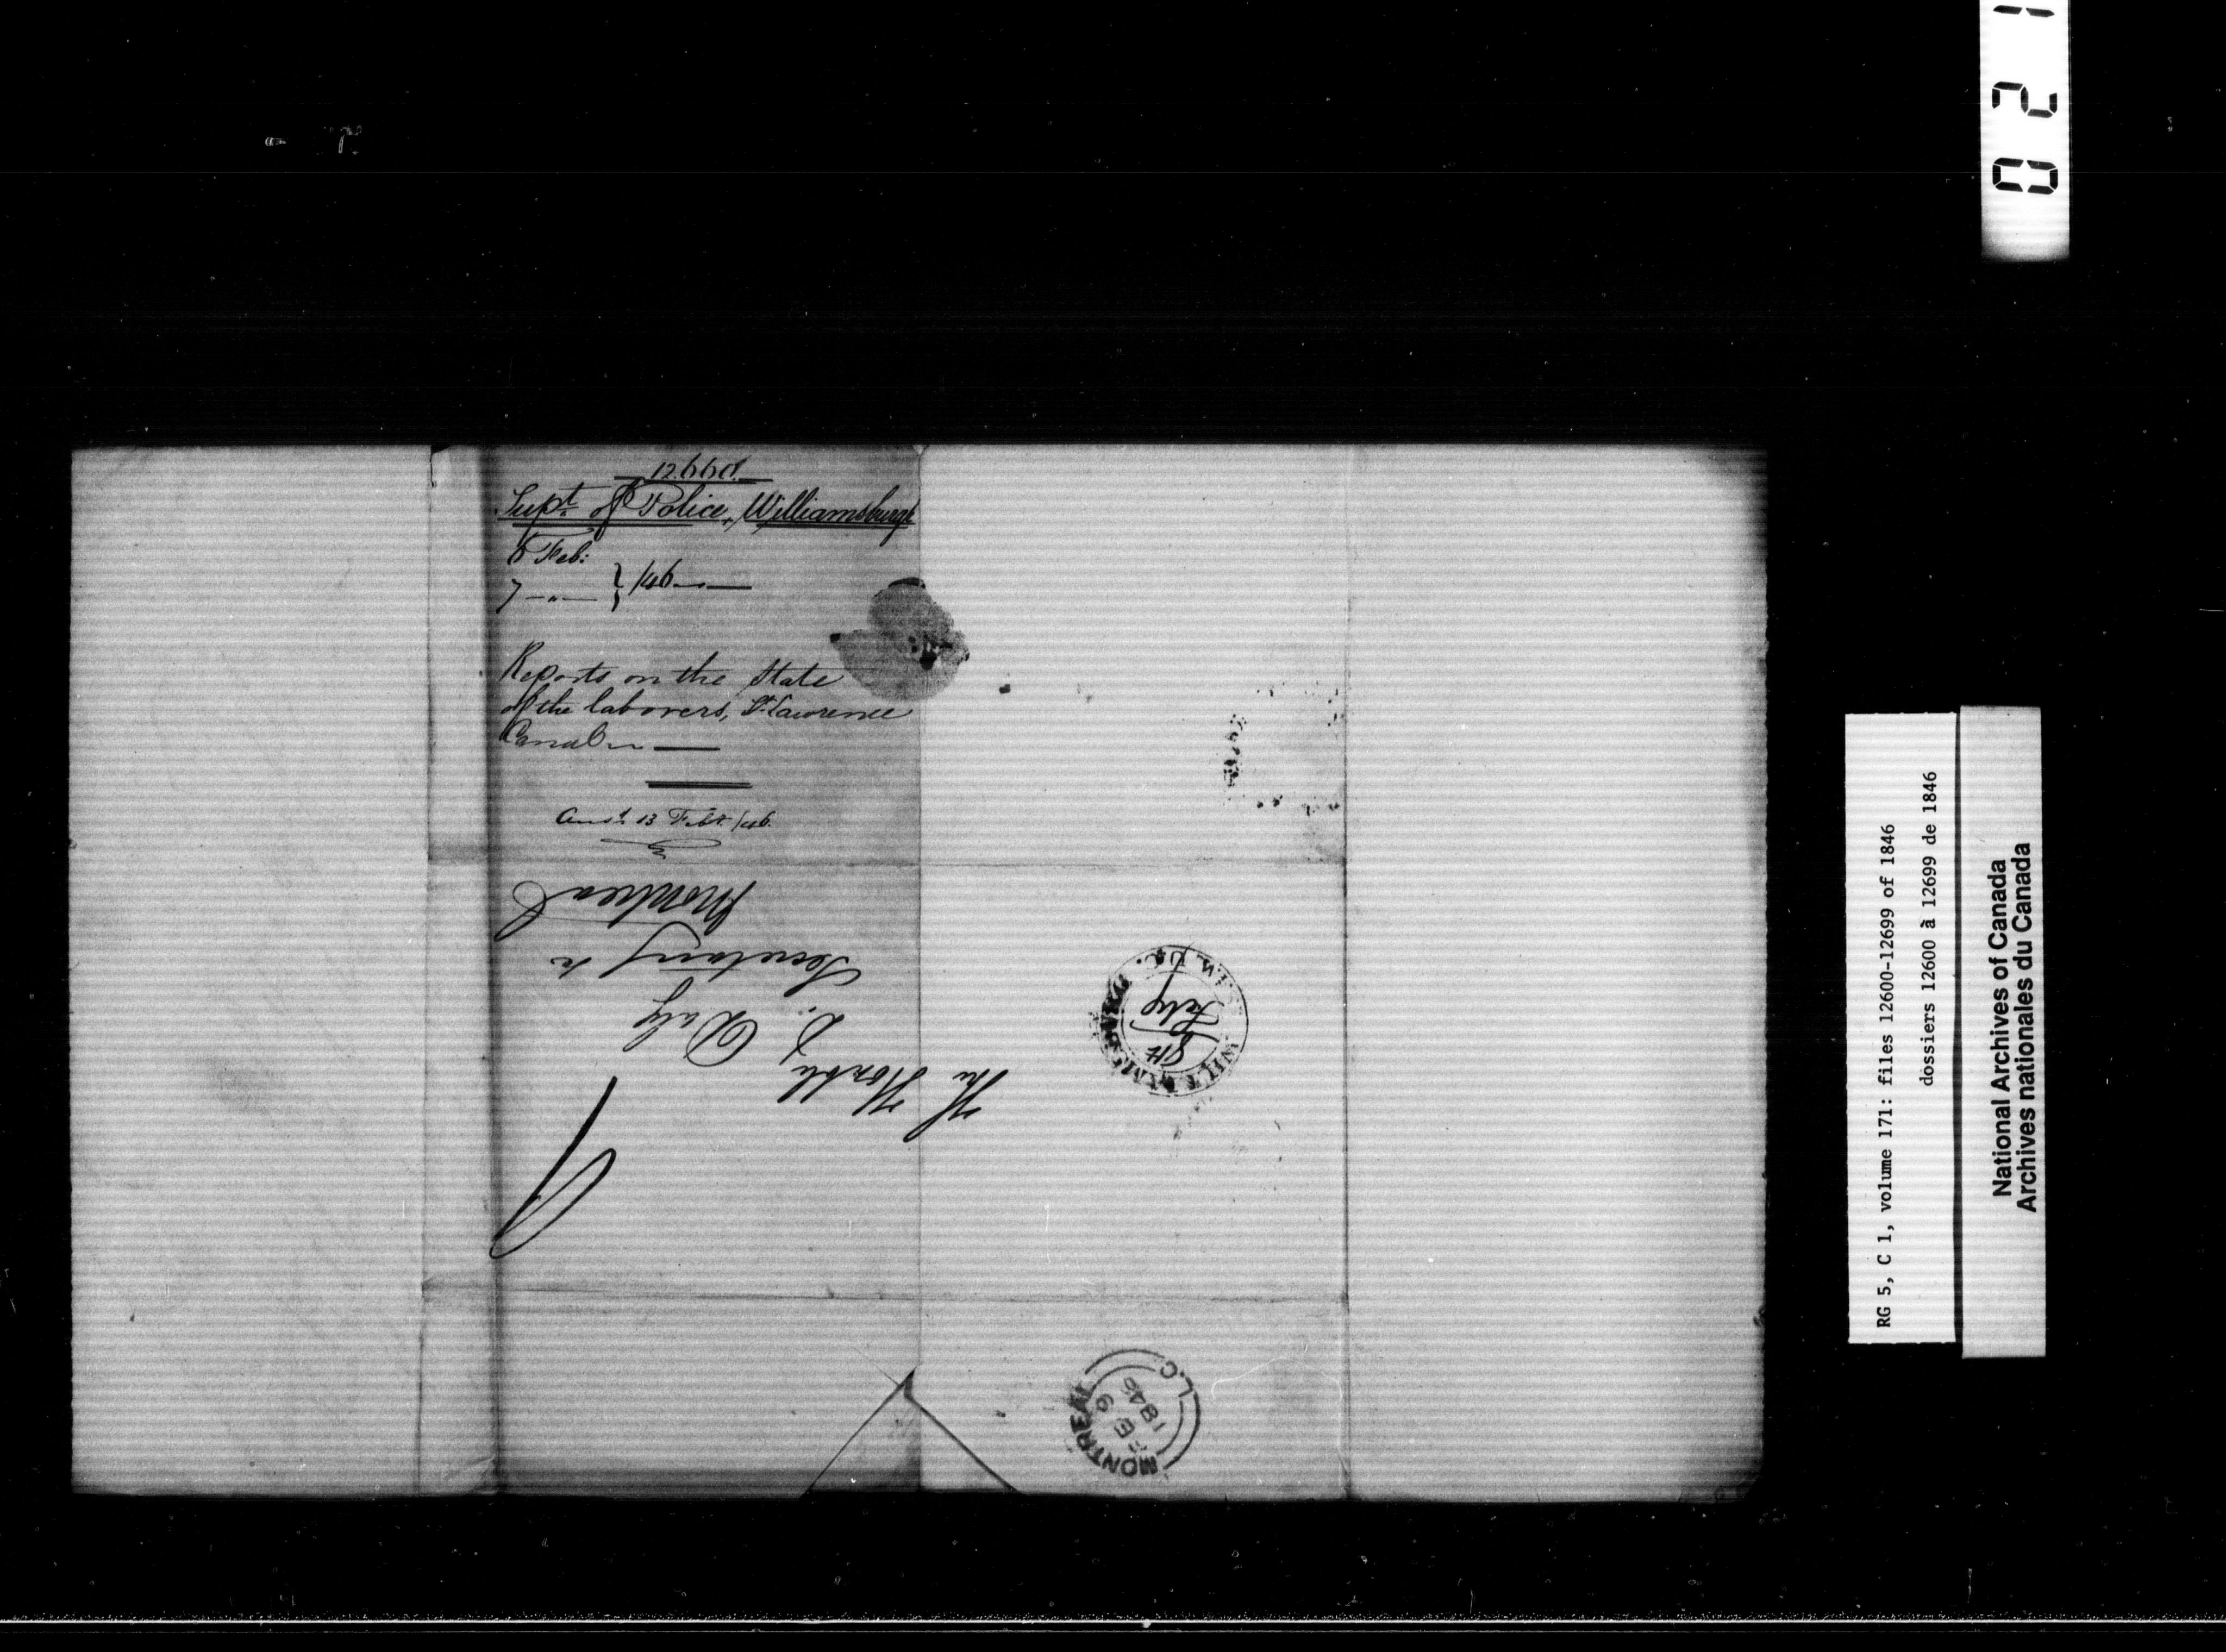 12.660.
Supt. of Police, Williamsburgh
6 Feb:
7 —"— } /46
Reports on the state
of the laborers, St. Lawrence
Canal
Ansd. 13 Feb. /46.
The Honbly
D. Daly
Secretary &c
Montreal
WILLIAMSBURG
8th
Feby
MONTREAL
FE 9
1846
L.C.
RG 5, C 1, volume 171: files 12600-12699 of 1846
dossiers 12600 à 12699 de 1846
National Archives of Canada
Archives nationales du Canada
021